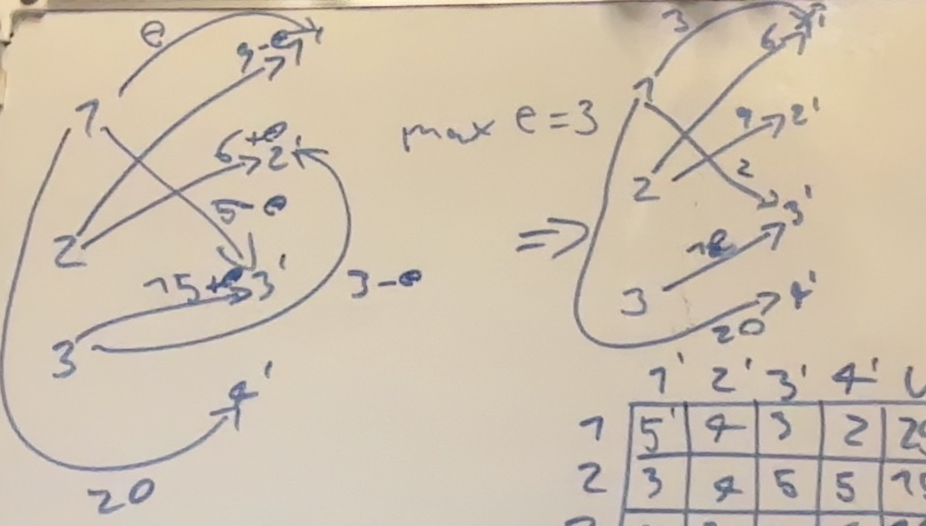 e
9-e
1'
1
6+e
2'
5-e
2
15+e
3'
3-e
3
4'
20
max e=3
=>
3
6
1'
1
9
2'
2
2
3'
18
3
4'
20
1' 2' 3' 4'
1 5 4 3 2
2 3 4 5 5